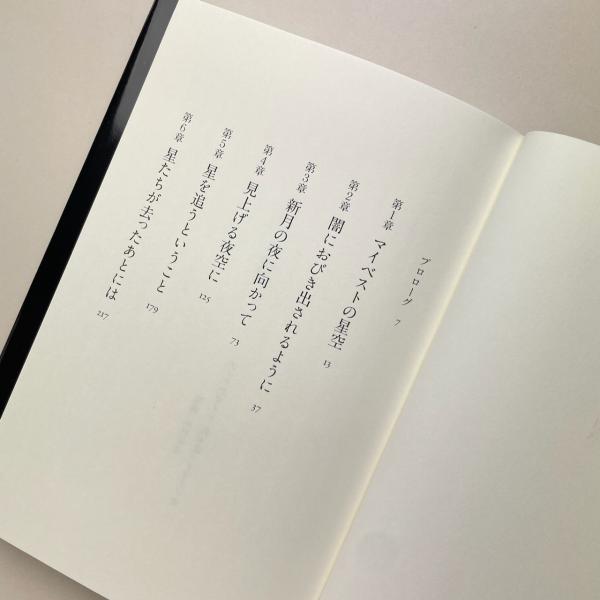 プロローグ 7
第1章 マイベストの星空 13
第2章 闇におびき出されるように 37
第3章 新月の夜に向かって 73
第4章 見上げる夜空に 125
第5章 星を追うということ 179
第6章 星たちが去ったあとには 217